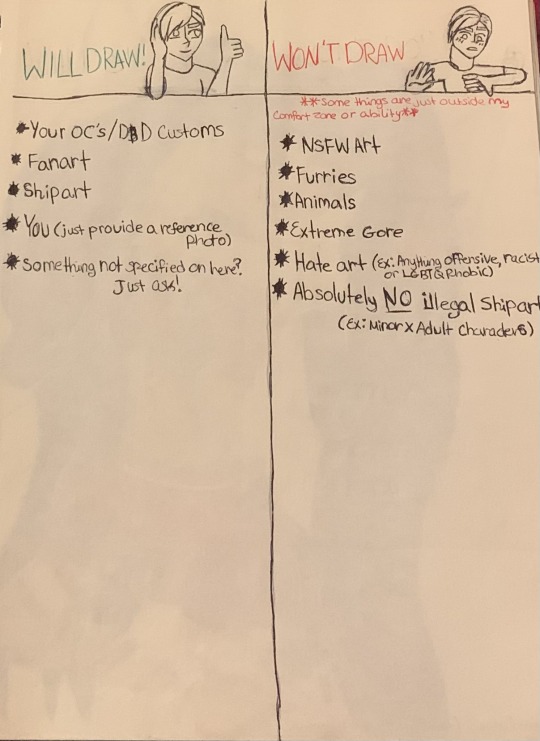 WILL DRAW!
*Your OC's/D&D Customs
* Fanart
* Shipart
* YOU (just provide a reference
photo)
* Something not specified on here?
Just ask!
WON'T DRAW
**Some things are just outside my
comfort zone or ability**
* NSFW Art
*Furries
*Animals
*Extreme Gore
* Hate art (Ex: Anything offensive, racist
or LGBTQ Phobic)
* Absolutely NO illegal Shipart
(Ex: Minor x Adult Characters)